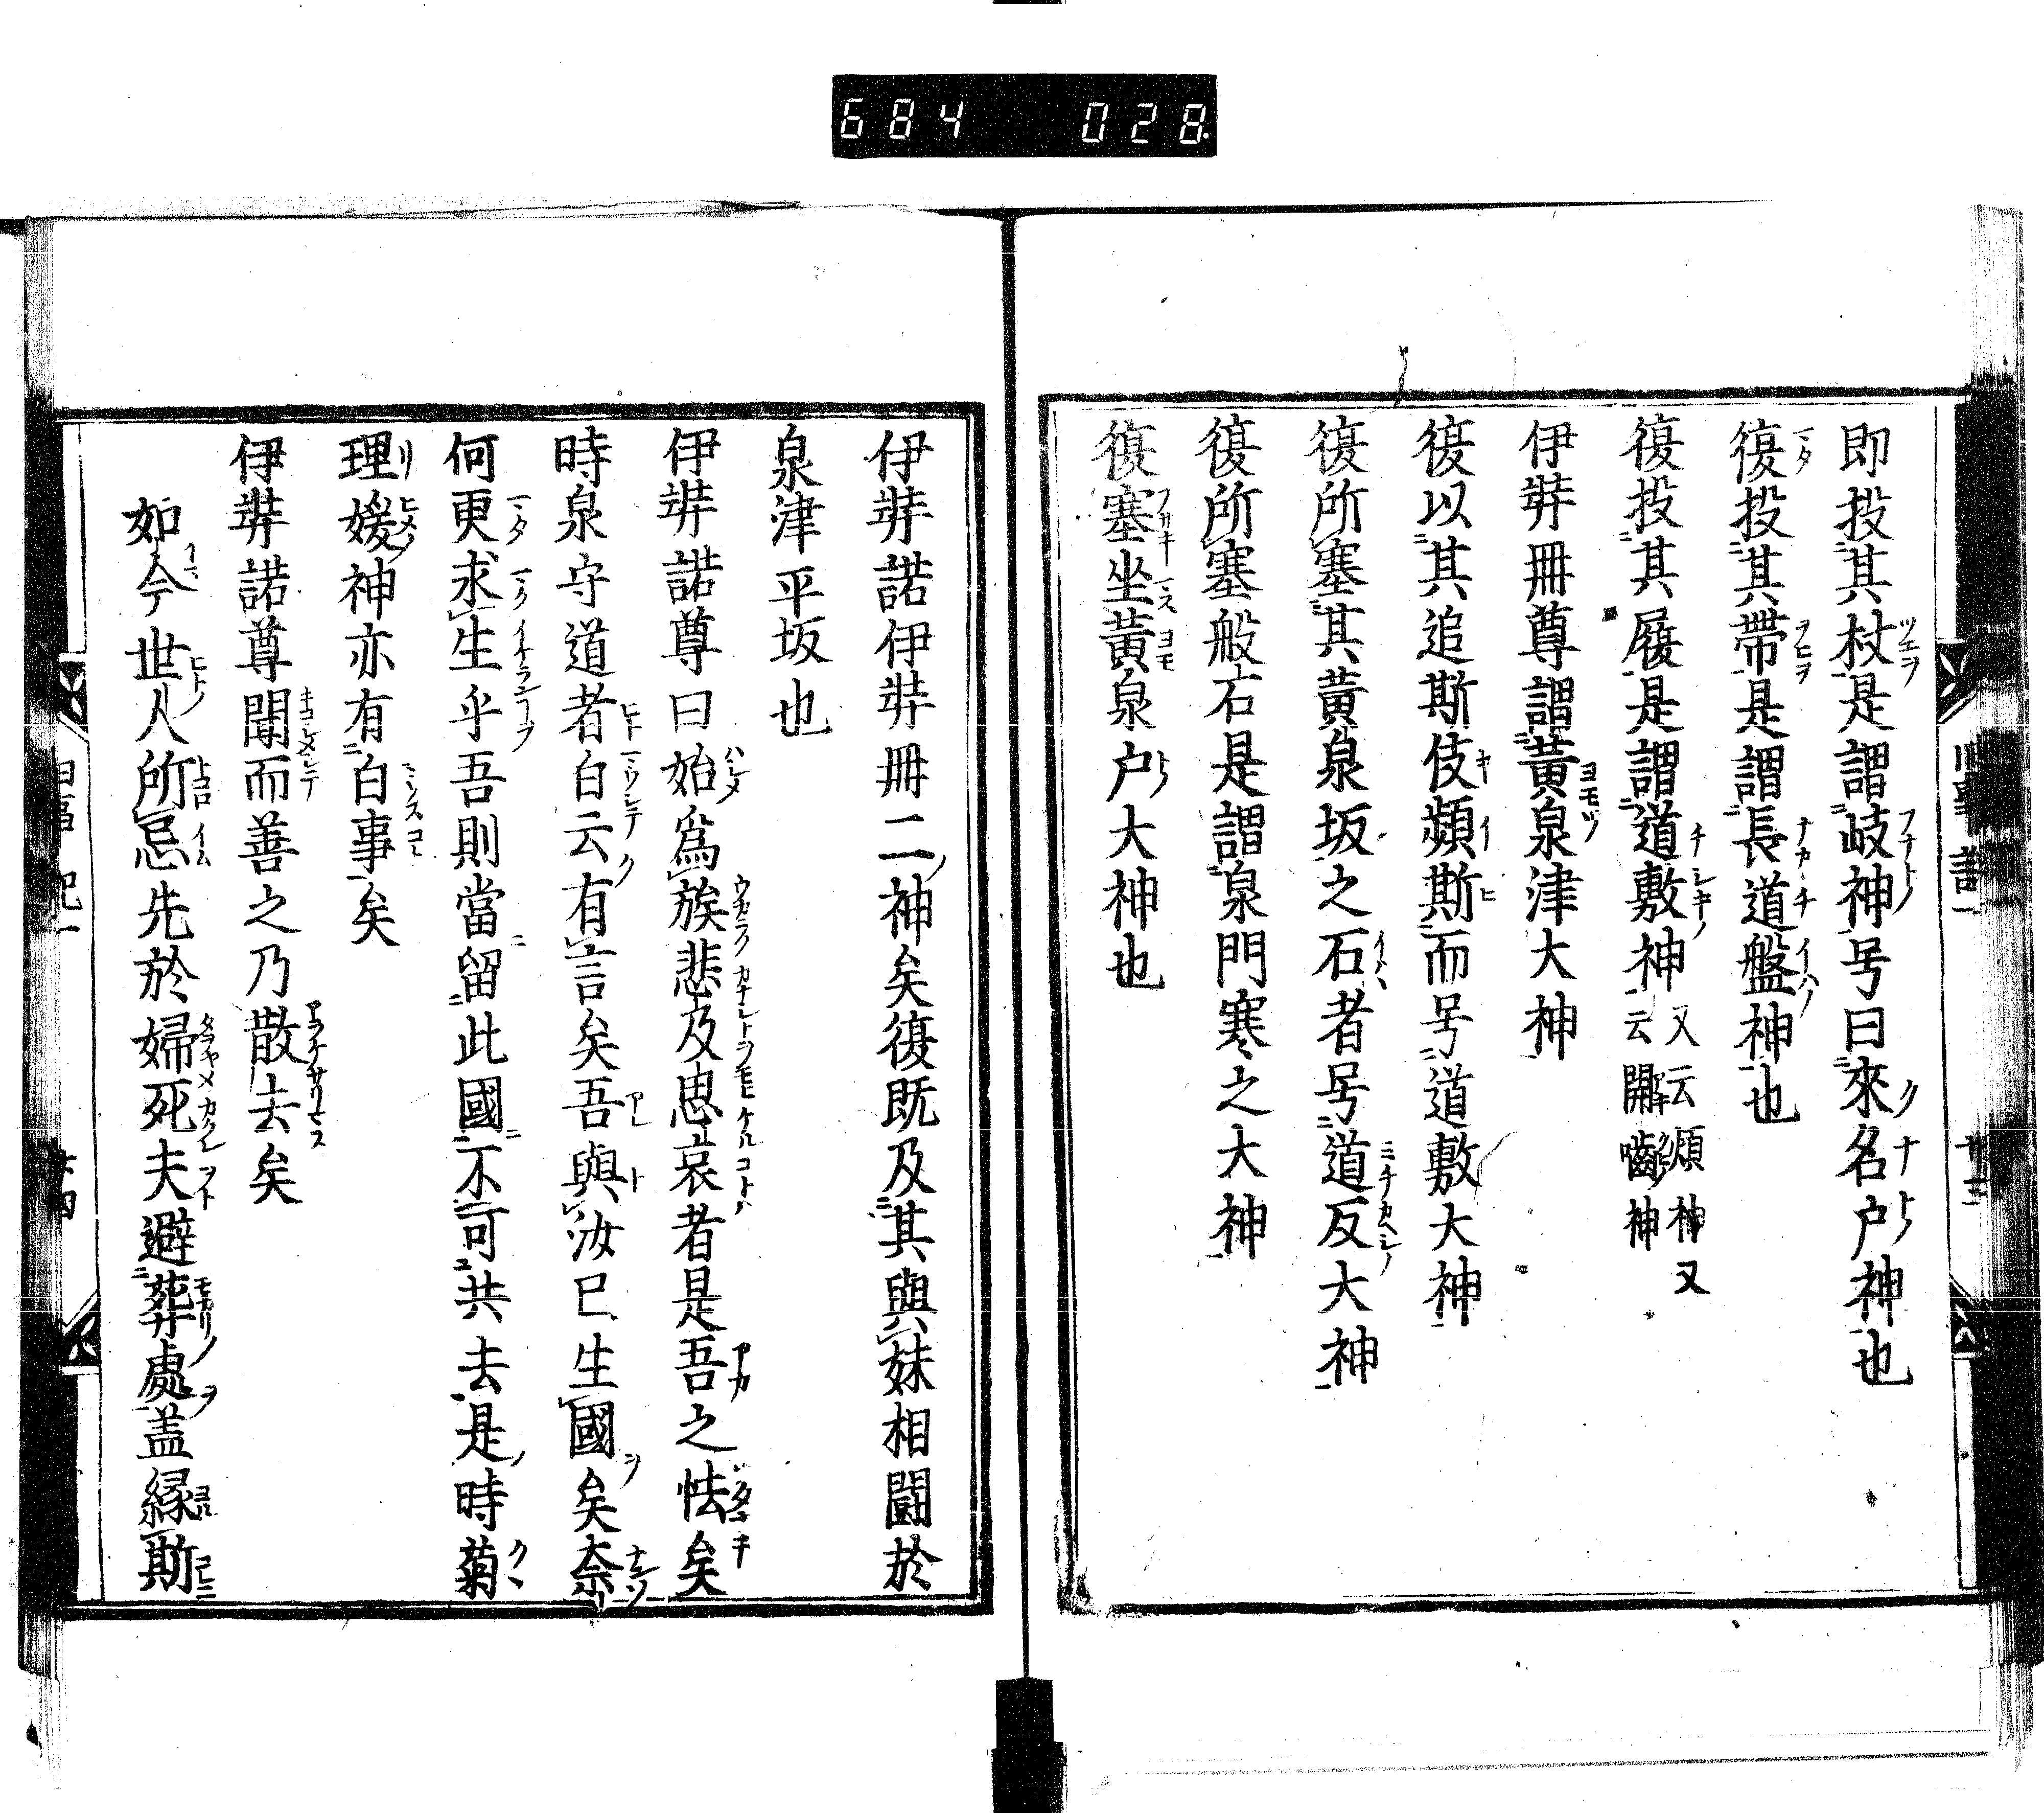 684 028
即投其杖是謂岐神号曰來名戸神也
復投其帶是謂長道盤神也
復投其履是謂道敷神又云煩神又云開囓神
伊弉冊尊謂黄泉津大神
復以其追斯伎蘋斯而号道敷大神
復所塞其黄泉坂之石者号道反大神
復所塞般石是謂泉門塞之大神
復塞坐黄泉戸大神也
伊弉諾伊弉冊二神矣復既及其與妹相闘於
泉津平坂也
伊弉諾尊曰始爲族悲及思哀者是吾之怯矣
時泉守道者白云有言矣吾與汝巳生國矣奈
何更求生乎吾則當留此國不可共去是時菊
理媛神亦有白事矣
伊弉諾尊聞而善之乃散去矣
如今世人所忌先於婦死夫避葬處盖縁斯